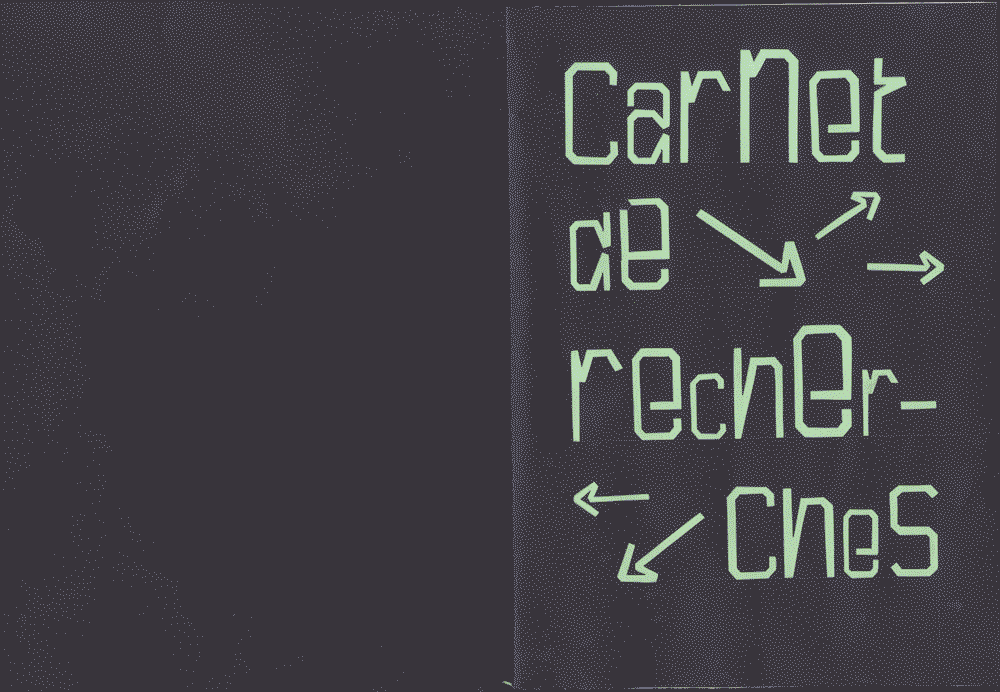 Carnet
de
recher-
ches